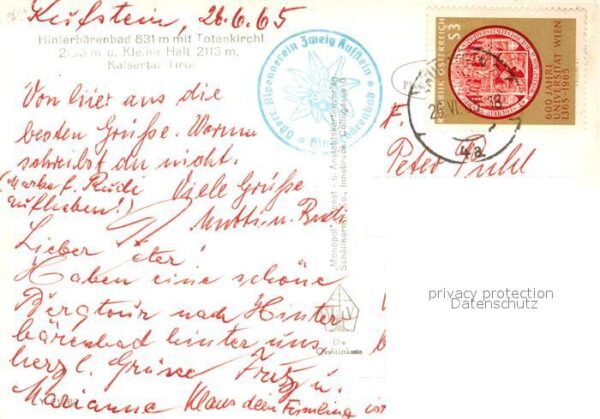 Kufstein, 26.6.65
Hinterbärenbad 831 m mit Totenkirchl
2193 m u. Kleine Halt 2113 m,
Kaisertal Tirol
Von hier aus die
besten Grüße. Warum
schreibst du nicht.
(Marke f. Rudi Viele Grüsse
aufheben!) Mutti u.
Lieber Peter!
Haben eine schöne
Bergtour nach Hinter
bärenbad hinter uns
herzl. Grüsse Fritz u.
Marianne Klaus dein Firmling
Österr. Alpenverein Zweig Kufstein
"Monopol"
Schöllkorn Innsbruck
Die
Qualitätskarte
REPUBLIK ÖSTERREICH
S3
600 JAHRE
UNIVERSITÄT WIEN
1365-1965
18
4a
F.
Peter Puhl
privacy protection
Datenschutz